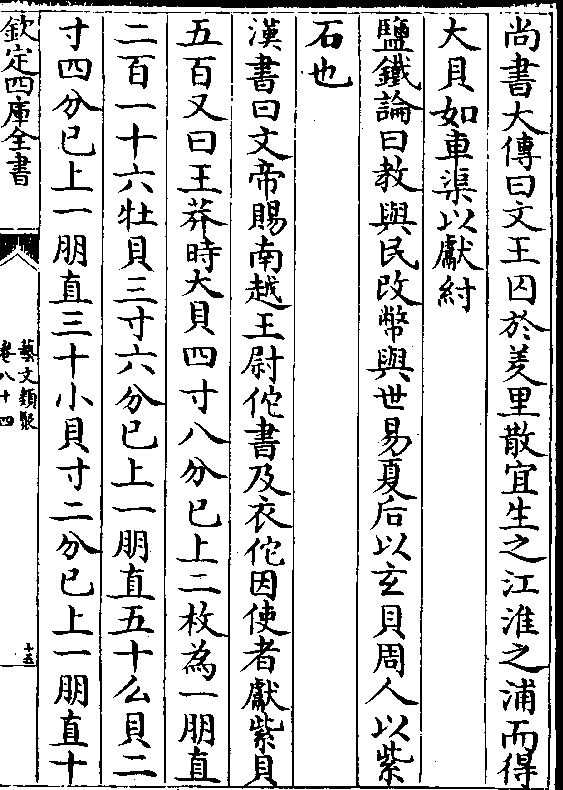 尚書大傳曰文王囚於羑里散宜生之江淮之浦而得
大貝如車渠以獻紂
鹽鐵論曰教與民改幣與世易夏后以玄貝周人以紫
石也
漢書曰文帝賜南越王尉佗書及衣佗因使者獻紫貝
五百又曰王莽時大貝四寸八分已上二枚為一朋直
二百一十六牡貝三寸六分已上一朋直五十么貝二
寸四分已上一朋直三十小貝寸二分已上一朋直十
欽定四庫全書
藝文類聚
卷八十四
十五